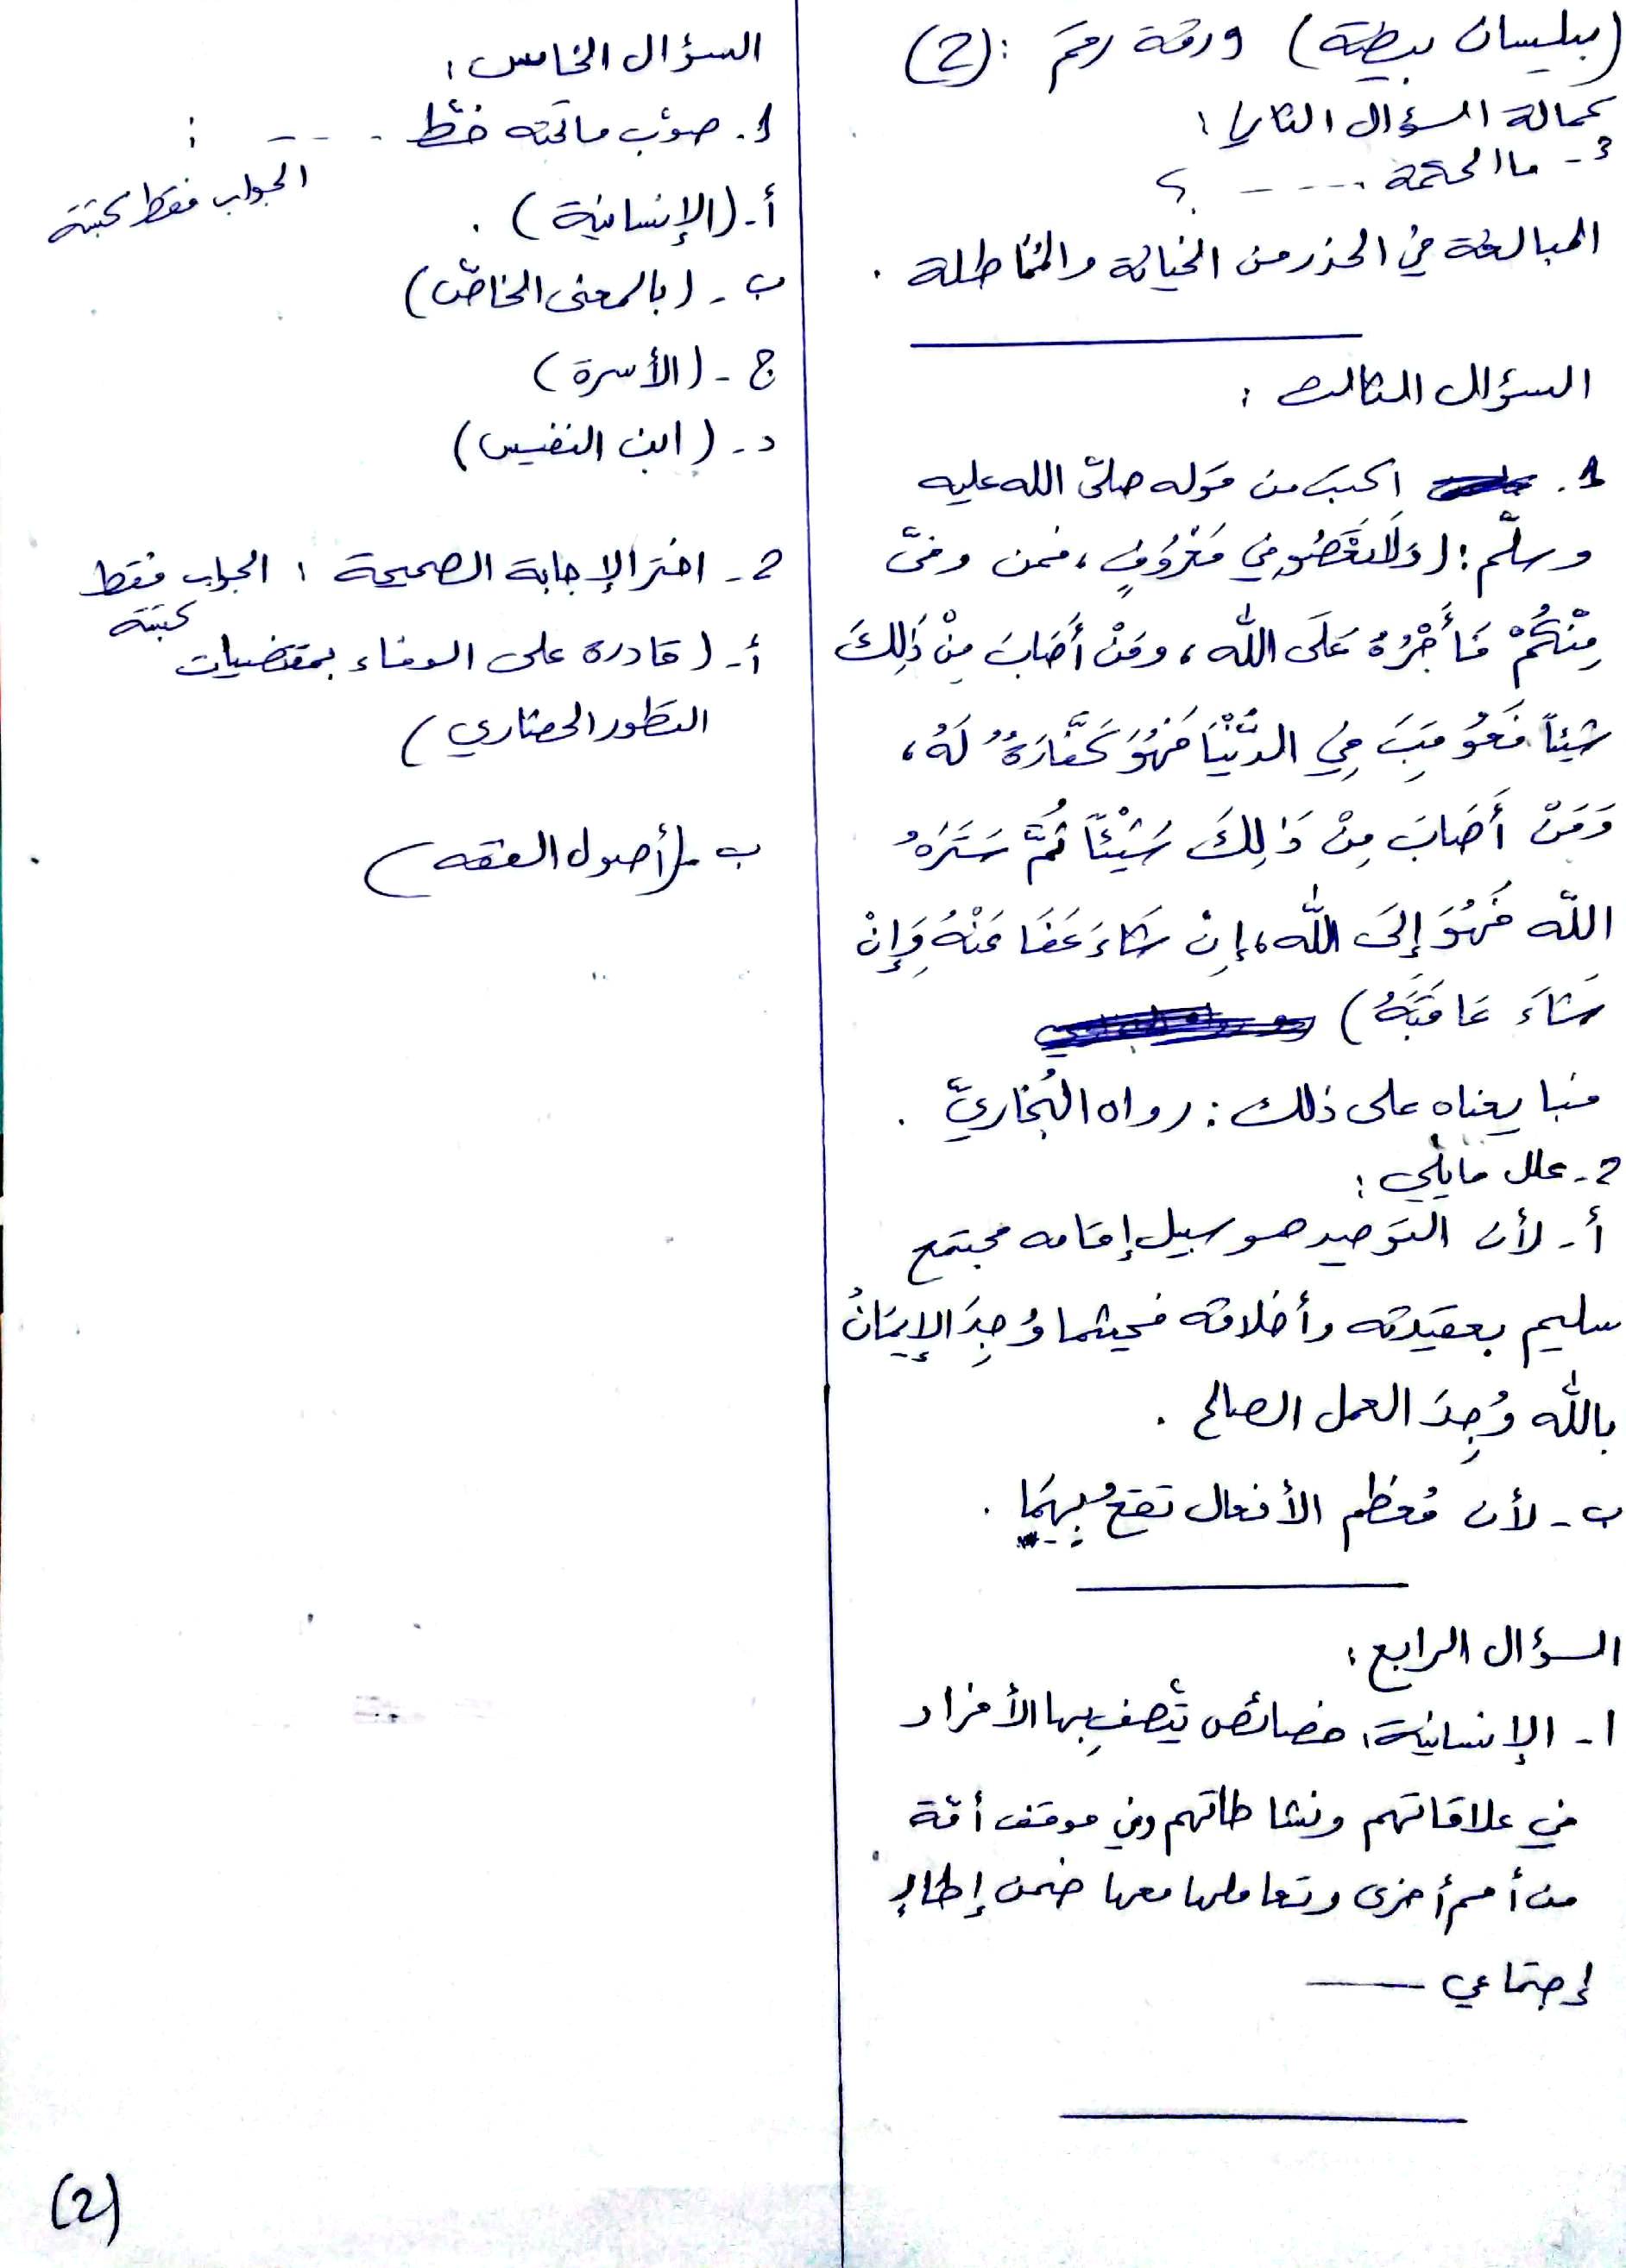 (بيلسان بيضة) ورقة رقم : (2)
تكمالة السؤال الثاني :
3 - ما الحكمة - - - - ؟
المبالغة في الحذر من الخيانة والمُماطلة .
السؤال الثالث :
1. اكتب من قوله صلّى الله عليه
وسلّم : (وَلَا تَعْصُو فِي مَعْرُوفٍ ، فمن وفىّ
مِنْكُمْ فَأَجْرُهُ عَلَى الله ، ومَنْ أَصَابَ مِنْ ذَلِكَ
شيئاً فَعُوقِبَ فِي الدُّنْيَا فَهُوَ كَفَّارَةٌ لَهُ ،
وَمَنْ أَصَابَ مِنْ ذَلِكَ شَيْئاً ثُمَّ سَتَرَهُ
اللّه فَهُوَ إلَى اللّه ، إِنْ شَاءَ عَفَا عَنْهُ وَإِنْ
شَاءَ عَاقَبَهُ)
فبايعناه على ذلك : رواه البُخاريّ .
2 - علل مايلي :
أ - لأن التوحيد هو سبيل إقامه مجتمع
سليم بعقيدته وأخلاقه فحيثما وُجِدَ الإيمَانُ
بالله وُجِدَ العمل الصالح .
ب - لأن مُعظم الأفعال تقعُ بِهِمَا .
السؤال الرابع :
1 - الإنسانية : خصائص يتّصف بها الأفراد
في علاقاتهم ونشاطاتهم وفي موقف أمّة
من أمم أخرى وتعاملها معها ضمن إطارٍ
إجتماعي
السؤال الخامس :
1. صوّب ماتحته خطّ - - - - :
الجواب فقط كتبته
أ - (الإنسانية) .
ب - (بالمعنى الخاصّ)
ج - (الأسرة)
د - (ابن النفيس)
2 - اختر الإجابة الصحيحة : الجواب فقط
كتبته
أ - (قادرة على الوفاء بمقتضيات
التطّور الحضاري)
ب - (أصول الفقه)
(2)